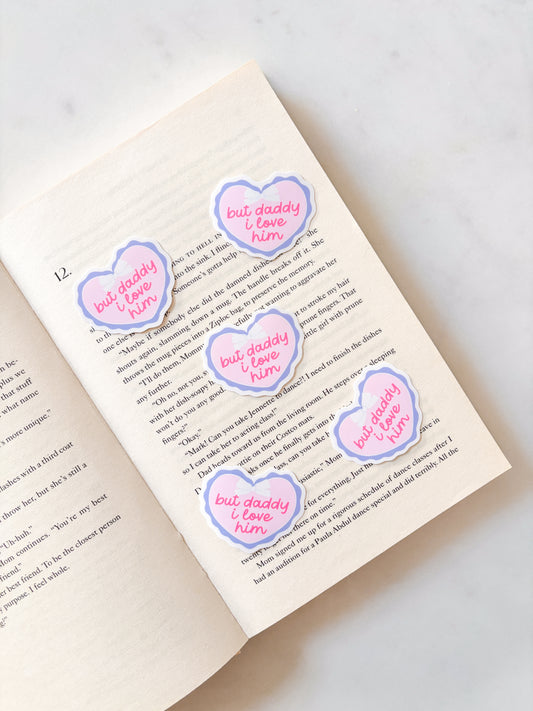 12.
ING TO HELL IN
into the sink. I finc
one else Someone's gotta help she
"Maybe if somebody else did the damned dishe
shouts again, slamming down a mug. The handle breaks off it. She
throws the mug pieces into a Ziploc bag, to preserve the memory.
"I'll do them, Momm fully not wanting to aggravate her
any further.
"Oh no, not you, s t to stroke my hair
with her dish-soapy prune fingers. That
won't do you any good. little girl with prune
fingers!"
"Okay."
"Mark! Can you take Jennette to dance?! I need to finish the dishes
so I can take her to acting class!"
Dad heads toward us from the living room. He steps over sleeping
ttie on their Costco mats.
ks once he finally gets into th
class, can you take
tastic." Mom
for everything. Just
twenty there on time."
Mom signed me up for a rigorous schedule of dance classes after I
had an audition for a Paula Abdul dance special and did terribly. All the
but daddy
i love
him
but daddy
i love
him
but daddy
i love
him
but daddy
i love
him
but daddy
i love
him
n be-
plus we
that stuff
what name
's more unique."
lashes with a third coat
throw her, but she's still a
"Uh-huh."
om continues. "You're my best
friend."
er best friend. To be the closest person
purpose. I feel whole.